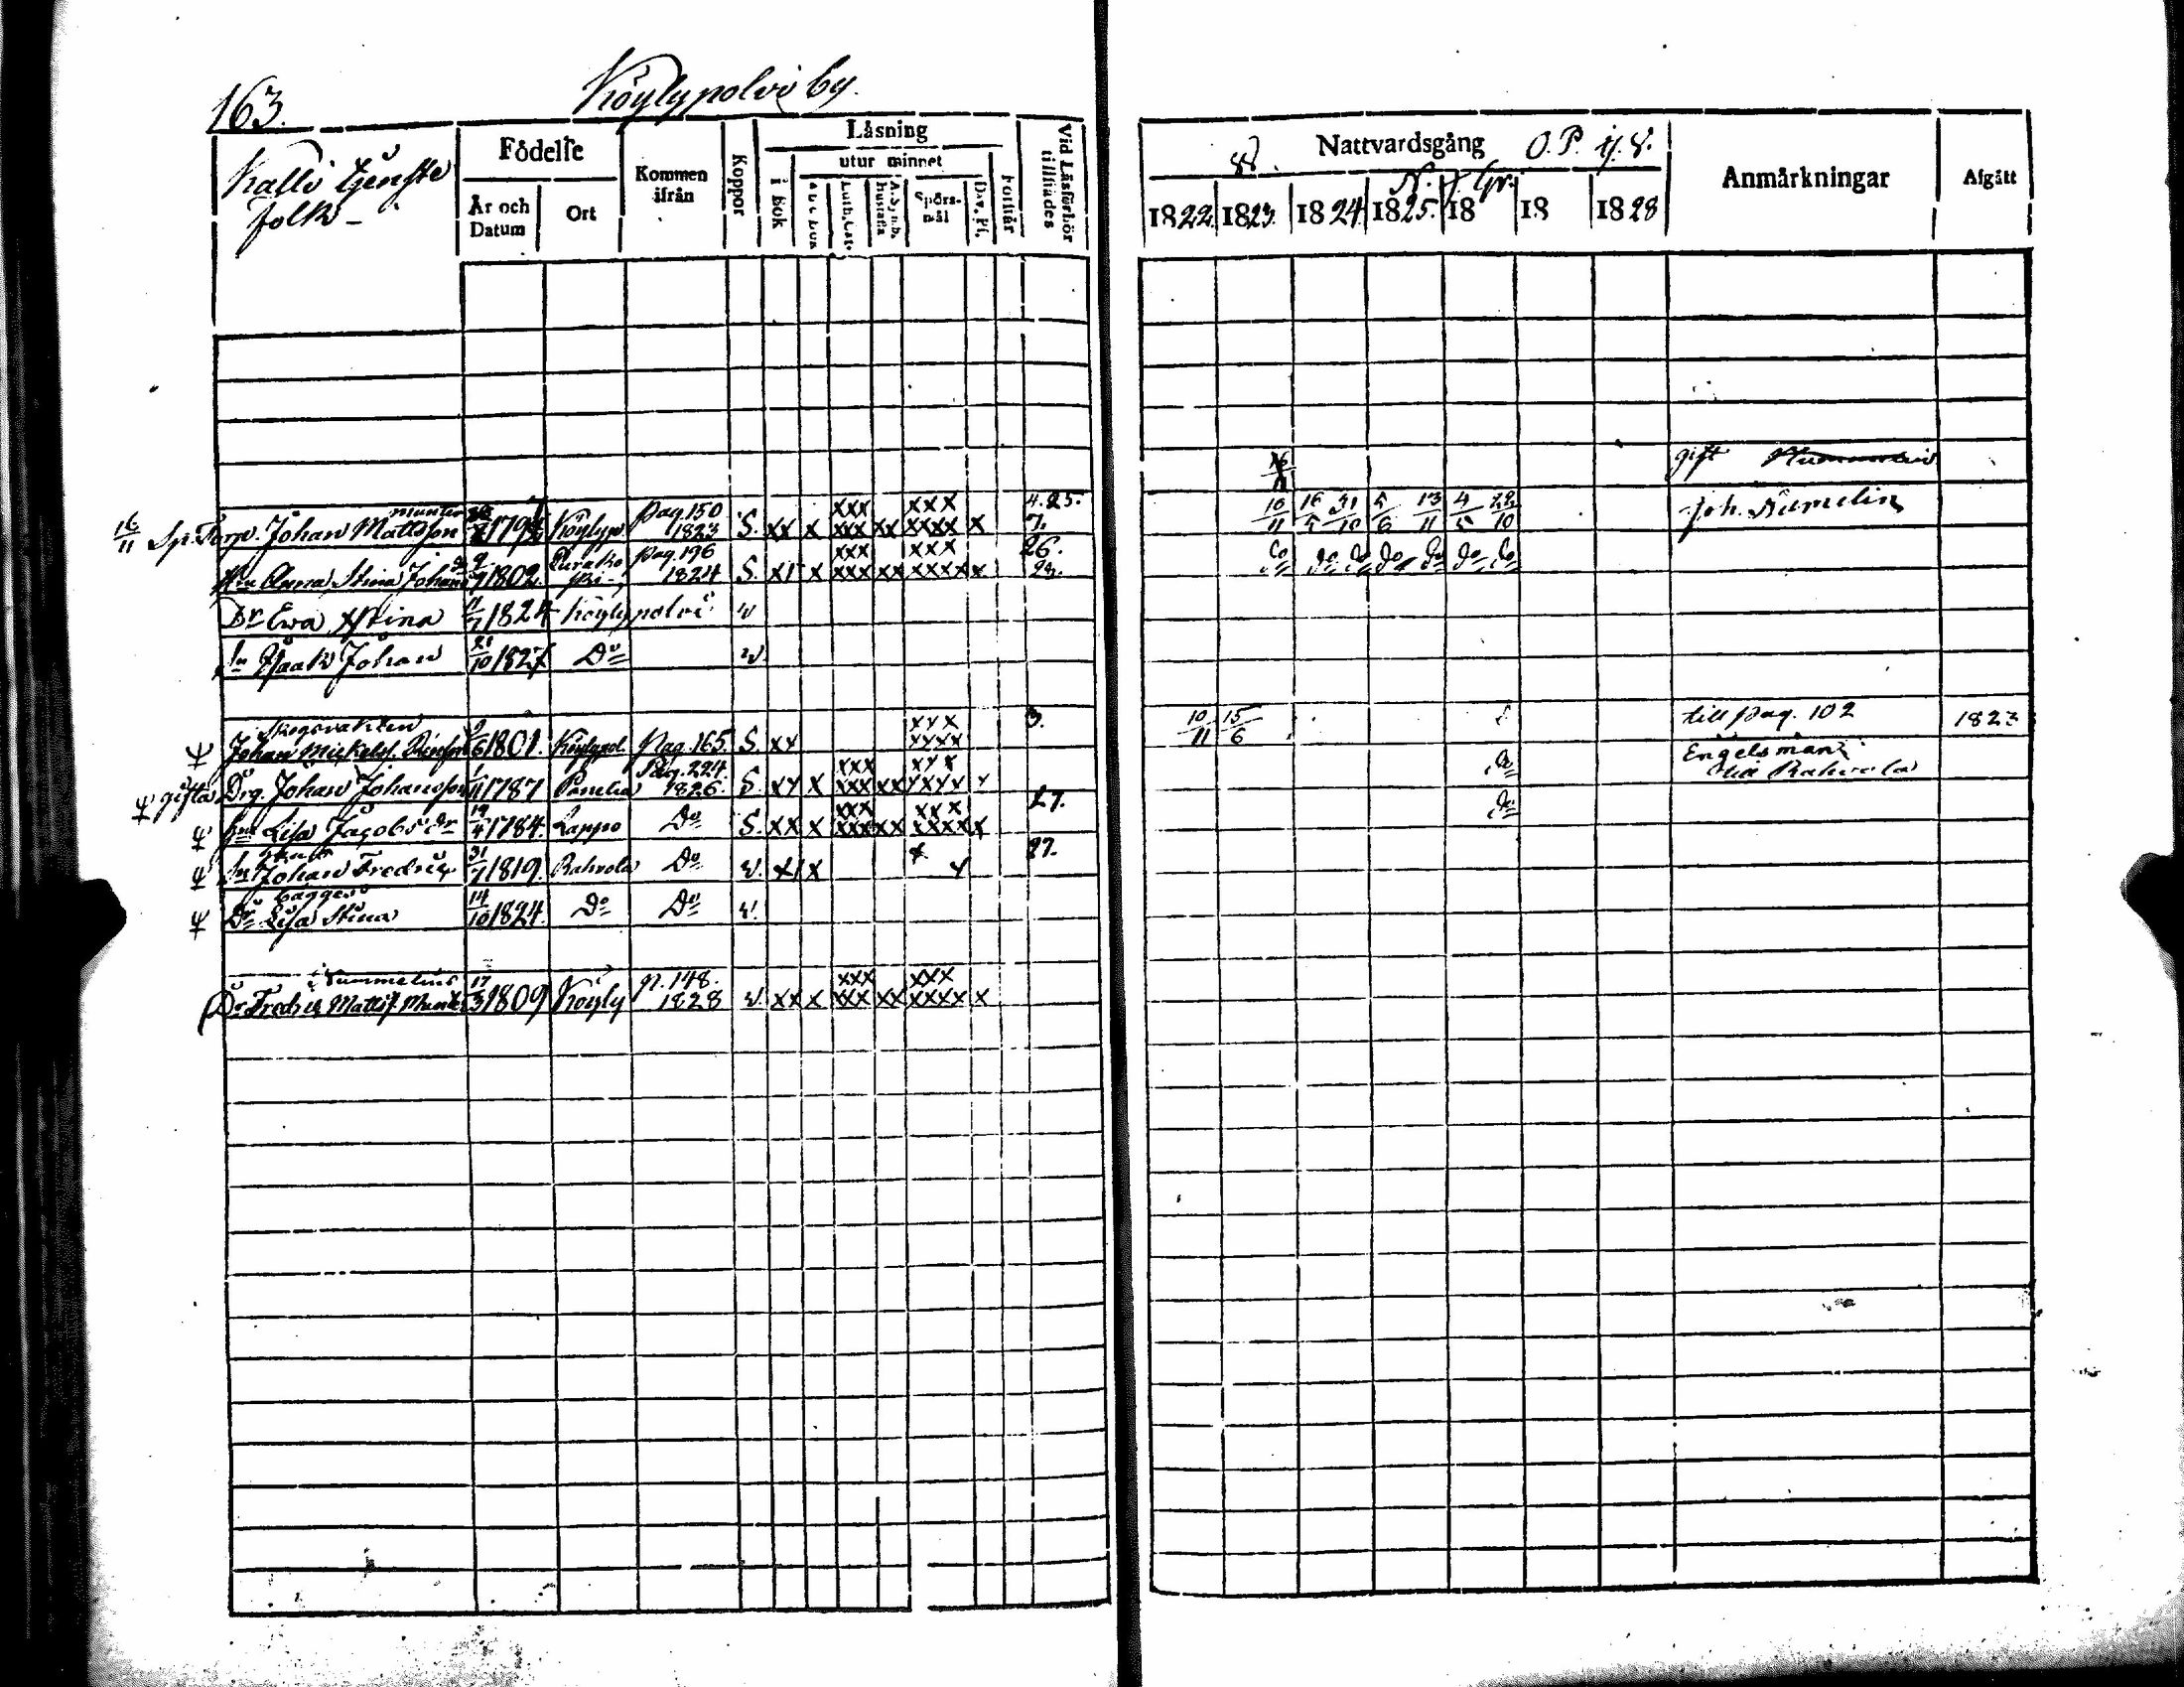 163. Köylypolvi by.
Kalli tjenste
folk -
Födelse
År och Datum
Ort
Kommen ifrån
Koppor
Läsning
utur minnet
i Bok
Spörsmål
Vid Läsförhör tillstädes
Nattvardsgång O. P. y. 8.
1822. 1823. 1824. 1825. 18 18 1828
Anmärkningar
Afgått
gift
16/11 Sp. Torp. Johan Mattsson Munter 179 Köylyp pag. 150 1823 S. xx x xxx xxx xx xxx xxxx x 4. 25. 7. 10/11 16/5 31/10 5/6 13/11 4/5 22/10 Joh. Numelin
Hu Anna Stina Johans dr 9/7 1802 pag. 196 1824 S. x x xxx xxx xx xxx xxxx x 26. Do Do Do Do Do Do Do
Dr Ewa Stina 11/7 1824 Köylypolvi v
Sn Isaak Johan 21/10 1827 Do v
Skogsvakten
Johan Mickelss. 6 1801. Köylypol. Pag. 165 S. xx xxx xxxx 3. 10/11 15/6 till pag. 102 1823
gifta Drg. Johan Johansson 1/11 1787 Panelia Pag. 224. 1826. S. xx x xxx xxx xx xxx xxxx x Do Engelsman till Rahvola
Hu Lisa Jacobs dr 19/4 1784. Lappo Do S. xx x xxx xxx xx xxx xxxx x 27. Do
Sn Johan Fredric 31/7 1819. Rahvola Do v. x x x 27.
bägges
Dr Lisa Stina 14/10 1824. Do Do v.
Nummelin
Dr Fredric Mattss. Munter 17/3 1809 Köyly p. 148. 1828 v. xx x xxx xxx xx xxx xxxx x